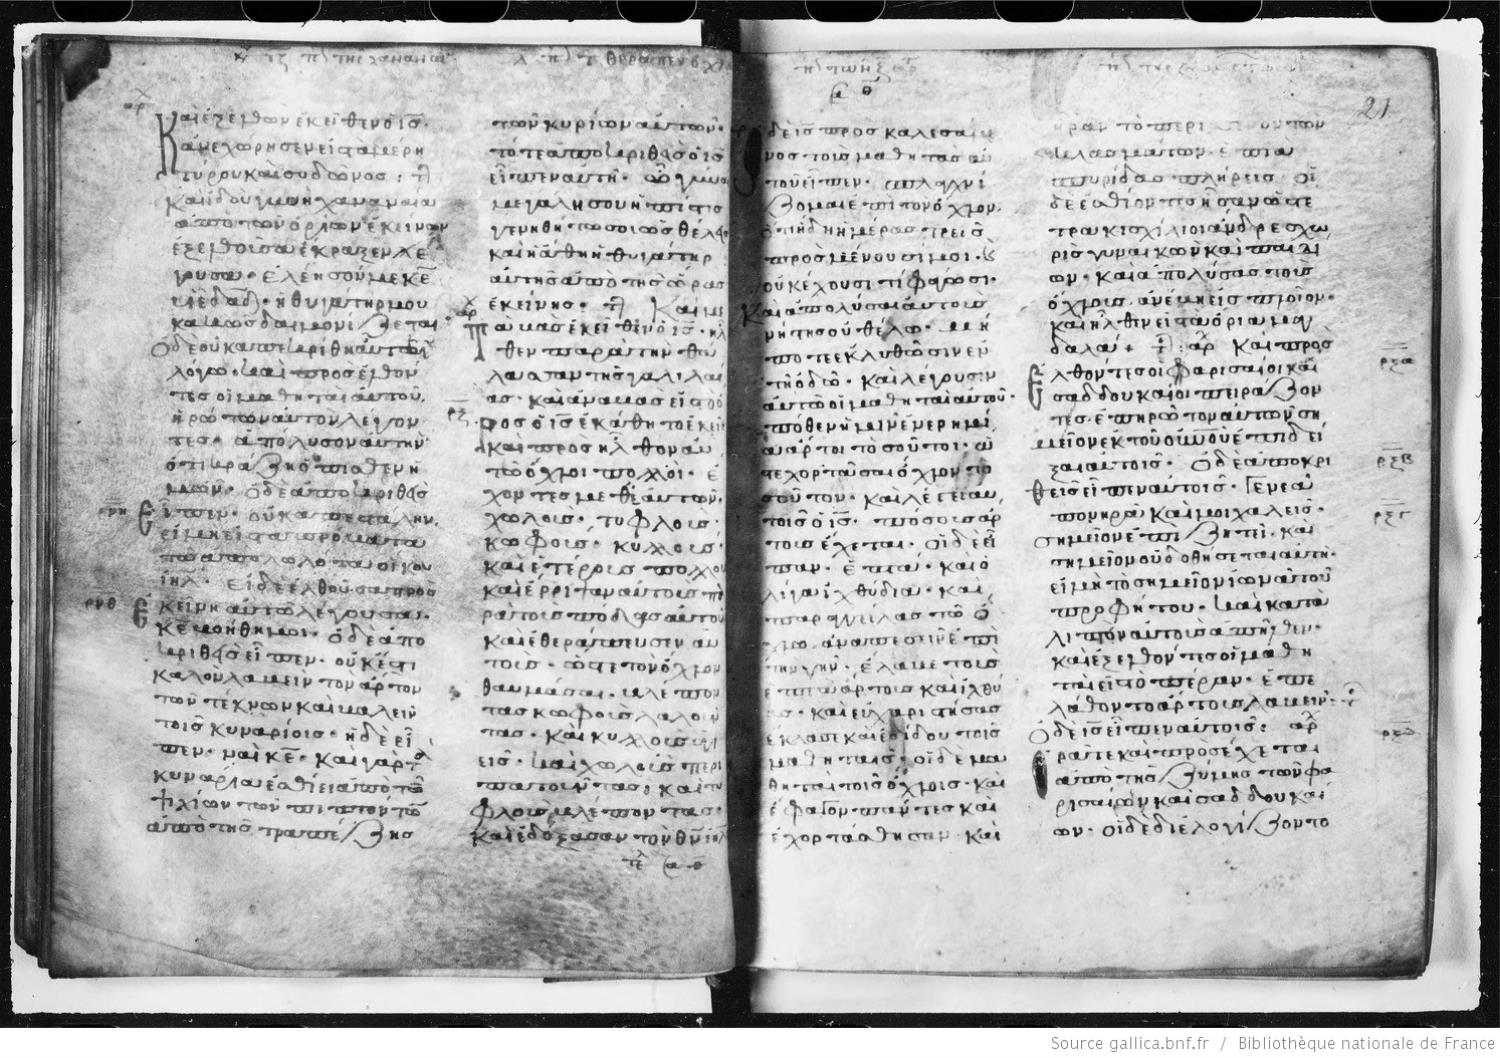 Καὶ ἐξελθὼν ἐκεῖθεν ὁ ἰς
ἀνεχώρησεν εἰς τὰ μέρη
τύρου καὶ σιδῶνος
καὶ ἰδοὺ γυνὴ χαναναία
ἀπὸ τῶν ὁρίων ἐκείνων
ἐξελθοῦσα ἐκραξεν λέ
γουσα· ἐλέησόν με κε
υἱὲ δαδ· ἡ θυγάτηρ μου
κακῶς δαιμονίζεται·
ὁ δὲ οὐκ ἀπεκρίθη αὐτῆ
λόγω· καὶ προσελθον
τες οἱ μαθηταὶ αὐτοῦ,
ἠρώτων αὐτὸν λέγον
τες· ἀπόλυσον αὐτὴν
ὅτι κράζει ὄπισθεν ἡ
μῶν· ὁ δὲ ἀποκριθεὶς
εἶπεν· οὐκ ἀπεστάλην,
εἰ μὴ εἰς τὰ πρόβατα
τὰ ἀπολωλότα οἴκου
ιηλ· ἡ δὲ ἐλθοῦσα προσ
εκύνει αὐτῶ λέγουσα·
κε βοήθει μοι· ὁ δὲ ἀπο
κριθεὶς εἶπεν· οὐκ ἔστι
καλὸν λαβεῖν τὸν ἄρτον
τῶν τέκνων καὶ βαλεῖν
τοῖς κυναρίοις· ἡ δὲ εἶ
πεν· ναὶ κε· καὶ γὰρ τὰ
κυνάρια ἐσθίει ἀπὸ τῶν
ψιχίων τῶν πιπτόντων
ἀπὸ τῆς τραπέζης
τῶν κυρίων αὐτῶν·
τότε ἀποκριθεὶς ὁ ἰς
εἶπεν αὐτῆ· ὦ γύναι
μεγάλη σου ἡ πίστις
γενηθήτω σοι ὡς θέλεις
καὶ ἰάθη ἡ θυγάτηρ
αὐτῆς ἀπὸ τῆς ὥρας
ἐκείνης· Καὶ με
ταβὰς ἐκεῖθεν ὁ ις ἦλ
θεν παρὰ τὴν θά
λασσαν τῆς γαλιλαί
ας· καὶ ἀναβὰς εἰς τὸ ὄ
ρος ὁ ις ἐκάθητο ἐκεῖ
καὶ προσῆλθον αὐ
τῶ ὄχλοι πολλοί· ἔ
χοντες μεθ' ἑαυτῶν,
χωλοὺς· τυφλούς·
κωφούς· κυλλούς·
καὶ ἑτέρους πολλοὺς
καὶ ἔρριψαν αὐτοὺς πα
ρὰ τοὺς πόδας αὐτοῦ
καὶ ἐθεράπευσεν αὐ
τούς· ὥστε τὸν ὄχλον
θαυμάσαι· βλέπον
τας κωφοὺς λαλοῦν
τας· καὶ κυλλοὺς ὑγι
εῖς· καὶ χωλοὺς περι
πατοῦντας· καὶ τυ
φλοὺς βλέποντας·
καὶ ἐδόξασαν τὸν θν ιηλ
ὁ δὲ ις προσκαλεσάμε
νος τοὺς μαθητὰς αὐ
τοῦ εἶπεν· σπλαγχνί
ζομαι ἐπὶ τὸν ὄχλον,
ὅτι ἤδη ἡμέρας τρεῖς
προσμένουσί μοι·
οὐκ ἔχουσι τί φάγωσι·
καὶ ἀπολῦσαι αὐτοὺς
νήστεις οὐ θέλω· μή
ποτε ἐκλυθῶσιν ἐν
τῆ ὁδῶ· καὶ λέγουσιν
αὐτῶ οἱ μαθηταὶ αὐτοῦ·
πόθεν ἡμῖν ἐν ἐρημία,
ἄρτοι τοσοῦτοι· ὥσ
τε χορτάσαι ὄχλον το
σοῦτον· καὶ λέγει αὐ
τοῖς ὁ ις· πόσους ἄρ
τους ἔχεται· οἱ δὲ εἶ
παν· ἑπτά· καὶ ὀ
λίγα ἰχθύδια· καὶ
παραγγείλας τῶ ὄ
χλω ἀναπεσεῖν ἐπὶ
τὴν γῆν· ἔλαβε τοὺς
ἑπτὰ ἄρτους καὶ ἰχθύ
ας· καὶ εὐχαριστήσας
ἔκλασε καὶ ἐδίδου τοῖς
μαθηταῖς· οἱ δὲ μα
θηταὶ τοῖς ὄχλοις· καὶ
ἔφαγον πάντες καὶ
ἐχορτάσθησαν· Καὶ
ἦραν τὸ περισσεῦον τῶν
κλασμάτων ἑπτὰ
σπυρίδας πλήρεις· οἱ
δὲ ἐσθίοντες ἦσαν ὥσει
τετρακισχίλιοι ἄνδρες χω
ρὶς γυναικῶν καὶ παιδί
ων· καὶ ἀπολύσας τοὺς
ὄχλους, ἀνέβη εἰς πλοῖον·
καὶ ἦλθεν εἰς τὰ ὅρια μαγ
δαλά· Καὶ προσ
ελθόντες οἱ φαρισαῖοι καὶ
σαδδουκαῖοι πειράζον
τες· ἐπηρώτων αὐτὸν ση
μεῖον ἐκ τοῦ οὐνοῦ ἐπιδεῖ
ξαι αὐτοῖς· ὁ δὲ ἀποκρι
θεὶς εἶπεν αὐτοῖς· Γενεὰ
πονηρὰ καὶ μοιχαλεὶς·
σημεῖον ἐπιζητεῖ· καὶ
σημεῖον οὐ δοθήσεται αὐτῆ·
εἰ μὴ τὸ σημεῖον ἰωνᾶ τοῦ
προφήτου· καὶ κατα
λιπὼν αὐτοὺς ἀπῆλθεν·
καὶ ἐξελθόντες οἱ μαθη
ταὶ εἰς τὸ πέραν· ἐπε
λάθοντο ἄρτους λαβεῖν·
ὁ δὲ ις εἶπεν αὐτοῖς· ὁ
ρᾶτε καὶ προσέχεται
ἀπὸ τῆς ζύμης τῶν φα
ρισαίων καὶ σαδδουκαί
ων· οἱ δὲ διελογίζοντο
21
Source gallica.bnf.fr / Bibliothèque nationale de France